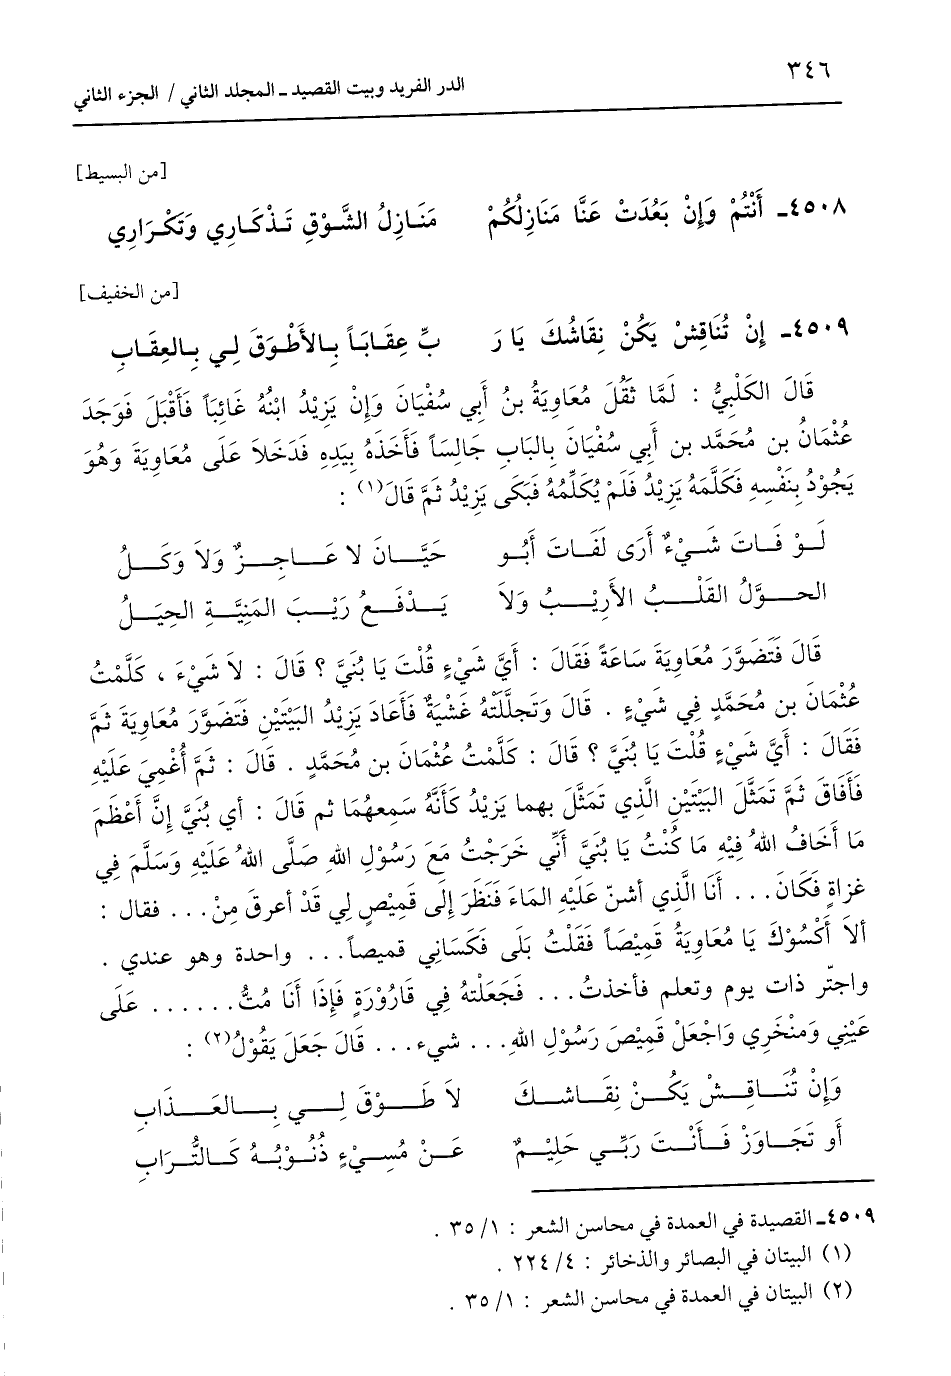 ٣٤٦
الدر الفريد وبيت القصيد ـ المجلد الثاني / الجزء الثاني
[من البسيط]
٤٥٠٨ـ أَنْتُمْ وَإِنْ بَعُدَتْ عَنَّا مَنَازِلُكُمْ مَنَازِلُ الشَّوْقِ تَذْكَارِي وَتَكْرَارِي
[من الخفيف]
٤٥٠٩ـ إِنْ تُنَاقِشْ يَكُنْ نِقَاشُكَ يَا رَ بِّ عِقَابَاً بِالأَطْوَقَ لِي بِالعِقَابِ
قَالَ الكَلْبِيُّ : لَمَّا ثَقُلَ مُعَاوِيَةُ بنُ أَبِي سُفْيَانَ وَإِنْ يَزِيْدُ ابْنُهُ غَائِبَاً فَأَقْبَلَ فَوَجَدَ
عُثْمَانُ بن مُحَمَّد بن أَبِي سُفْيَانَ بِالبَابِ جَالِسَاً فَأَخَذَهُ بِيَدِهِ فَدَخَلاَ عَلَى مُعَاوِيَةَ وَهُوَ
يَجُوْدُ بِنَفْسِهِ فَكَلَّمَهُ يَزِيْدُ فَلَمْ يُكَلِّمُهُ فَبَكَى يَزِيْدُ ثمَّ قَالَ(١) :
لَوْ فَاتَ شَيْءٌ أَرَى لَفَاتَ أَبُو حَيَّانَ لا عَاجِزٌ وَلاَ وَكَلُ
الحوَّلُ القَلْبُ الأَرِيْبُ وَلاَ يَدْفَعُ رَيْبَ المَنِيَّةِ الحِيَلُ
قَالَ فَتَضَوَّرَ مُعَاوِيَةَ سَاعَةً فَقَالَ : أَيَّ شَيْءٍ قُلْتَ يَا بُنَيَّ ؟ قَالَ : لاَ شَيْءَ ، كَلَّمْتُ
عُثْمَانَ بن مُحَمَّدٍ فِي شَيْءٍ . قَالَ وَتَجلَّلَتْهُ غَشْيَةٌ فَأَعَادَ يَزِيْدُ البَيْتَيْنِ فَتَضَوَّرَ مُعَاوِيَةَ ثمَّ
فَقَالَ : أَيَّ شَيْءٍ قُلْتَ يَا بُنَيَّ ؟ قَالَ : كَلَّمْتُ عُثْمَانَ بن مُحَمَّدٍ . قَالَ : ثمَّ أُغْمِيَ عَلَيْهِ
فَأَفَاقَ ثمَّ تَمَثَّلَ البَيْتَيْنِ الَّذِي تَمَثَّلَ بِهِما يَزِيْدُ كَأَنَّهُ سَمِعهُمَا ثم قَالَ : أي بُنَيَّ إِنَّ أَعْظَمَ
مَا أَخَافُ اللهُ فِيْهِ مَا كُنْتُ يَا بُنَيَّ أَنِّي خَرَجْتُ مَعَ رَسُوْلِ اللهِ صَلَّى اللهُ عَلَيْهِ وَسَلَّمَ فِي
غزاةٍ فَكَانَ... أَنَا الَّذِي أشنّ عَلَيْهِ المَاءَ فَنَظَرَ إِلَى قَمِيْصٍ لِي قَدْ أعرقَ مِنْ... فقال :
ألاَ أَكْسُوْكَ يَا مُعَاوِيَةُ قَمِيْصَاً فَقَلْتُ بَلَى فَكَسَانِي قميصاً... واحدة وهو عندي .
واجتّر ذات يوم وتعلم فأخذتُ... فَجَعَلْتهُ فِي قَارُوْرَةٍ فَإِذَا أَنَا مُتُّ...... عَلَى
عَيْنِي وَمنْخَرِي وَاجْعَلْ قَمِيْصَ رَسُوْلِ اللهِ... شيء... قَالَ جَعَلَ يَقُوْلُ(٢) :
وَإِنْ تُنَاقِشْ يَكُنْ نِقَاشكَ لاَ طَوْقَ لِي بِالعَذَابِ
أَو تَجَاوَزْ فَأَنْتَ رَبِّي حَلِيْمٌ عَنْ مُسِيْءٍ ذُنُوْبُهُ كَالتُّرَابِ
٤٥٠٩ـ القصيدة في العمدة في محاسن الشعر : ١/ ٣٥ .
(١) البيتان في البصائر والذخائر : ٤/ ٢٢٤ .
(٢) البيتان في العمدة في محاسن الشعر : ١/ ٣٥ .